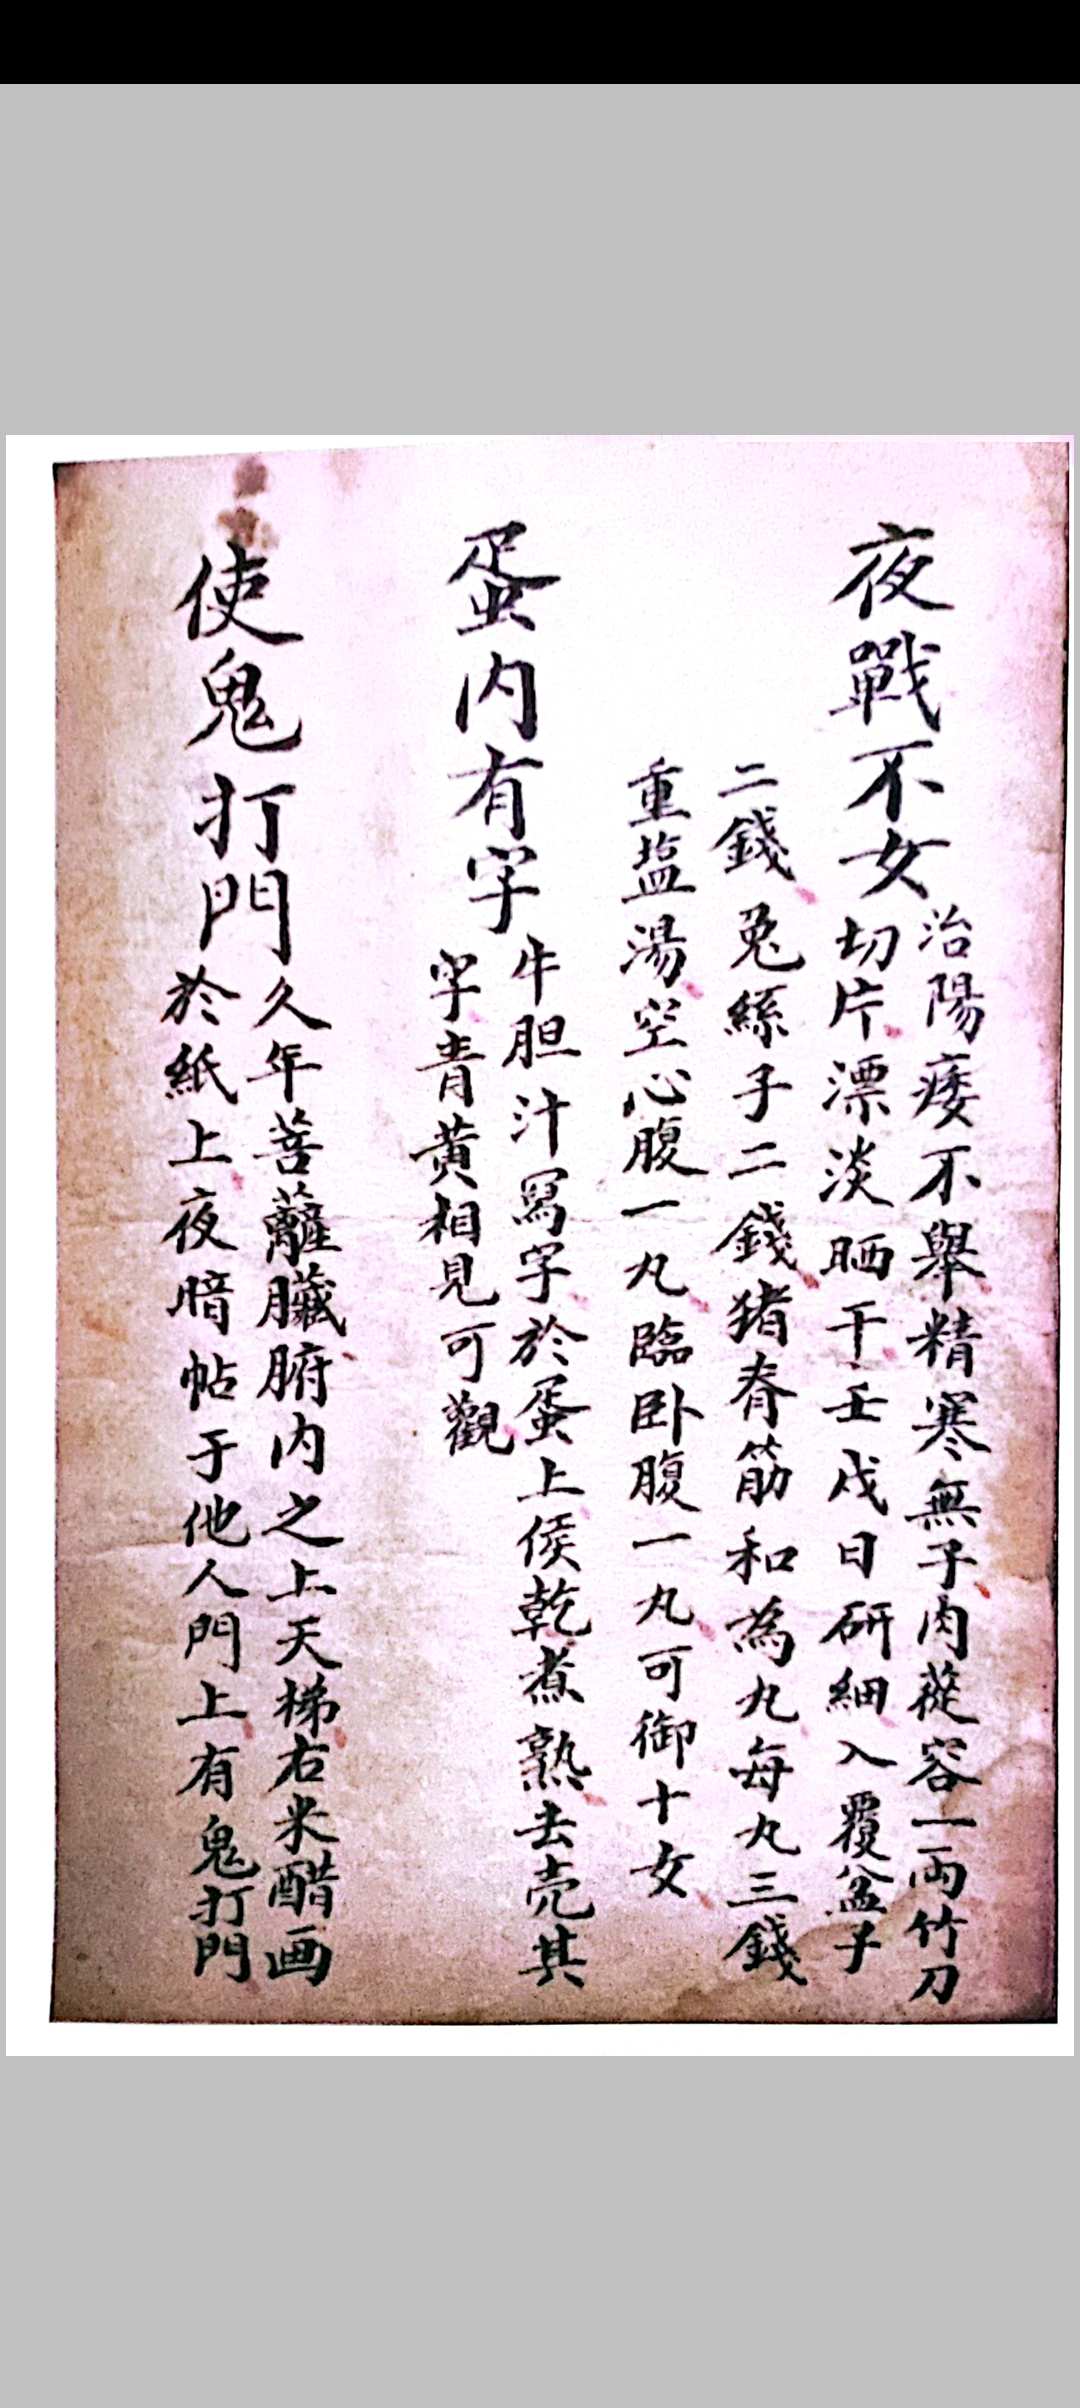 夜戰不女
治陽痿不舉精寒無子肉蓯容一両竹刀
切片漂淡晒干壬戌日研細入覆盆子
二錢兔絲子二錢猪脊筋和為丸每丸三錢
重盐湯空心腹一丸臨卧腹一丸可御十女
蛋内有字
牛胆汁寫字於蛋上侯乾煮熟去壳其
字青黄相見可觀
使鬼打門
久年菩薩臟腑内之上天梯右米醋画
於紙上夜暗帖于他人門上有鬼打門